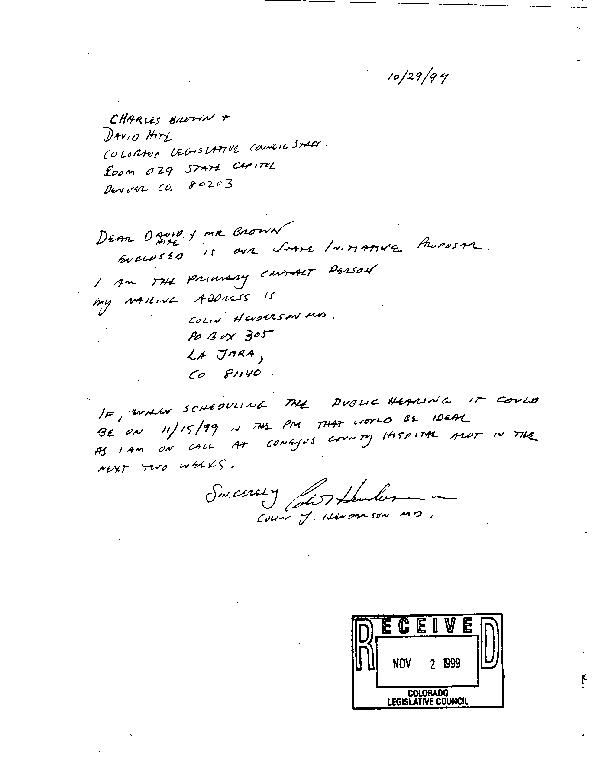 10/29/99
CHARLES BROWN +
DAVID HITE
COLORADO LEGISLATIVE COUNCIL STAFF.
ROOM 029 STATE CAPITOL
DENVER CO. 80203
DEAR DAVID HITE & MR BROWN
ENCLOSED IS OUR STATE INITIATIVE PROPOSAL.
I AM THE PRIMARY CONTACT PERSON
MY MAILING ADDRESS IS
COLIN HENDERSON MD.
PO BOX 305
LA JARA,
CO 81140.
IF, WHEN SCHEDULING THE PUBLIC HEARING IT COULD
BE ON 11/15/99 IN THE PM THAT WOULD BE IDEAL
AS I AM ON CALL AT CONEJOS COUNTY HOSPITAL MOST IN THE
NEXT TWO WEEKS.
SINCERELY Colin Henderson
COLIN J. HENDERSON MD.
RECEIVED
NOV 2 1999
COLORADO
LEGISLATIVE COUNCIL